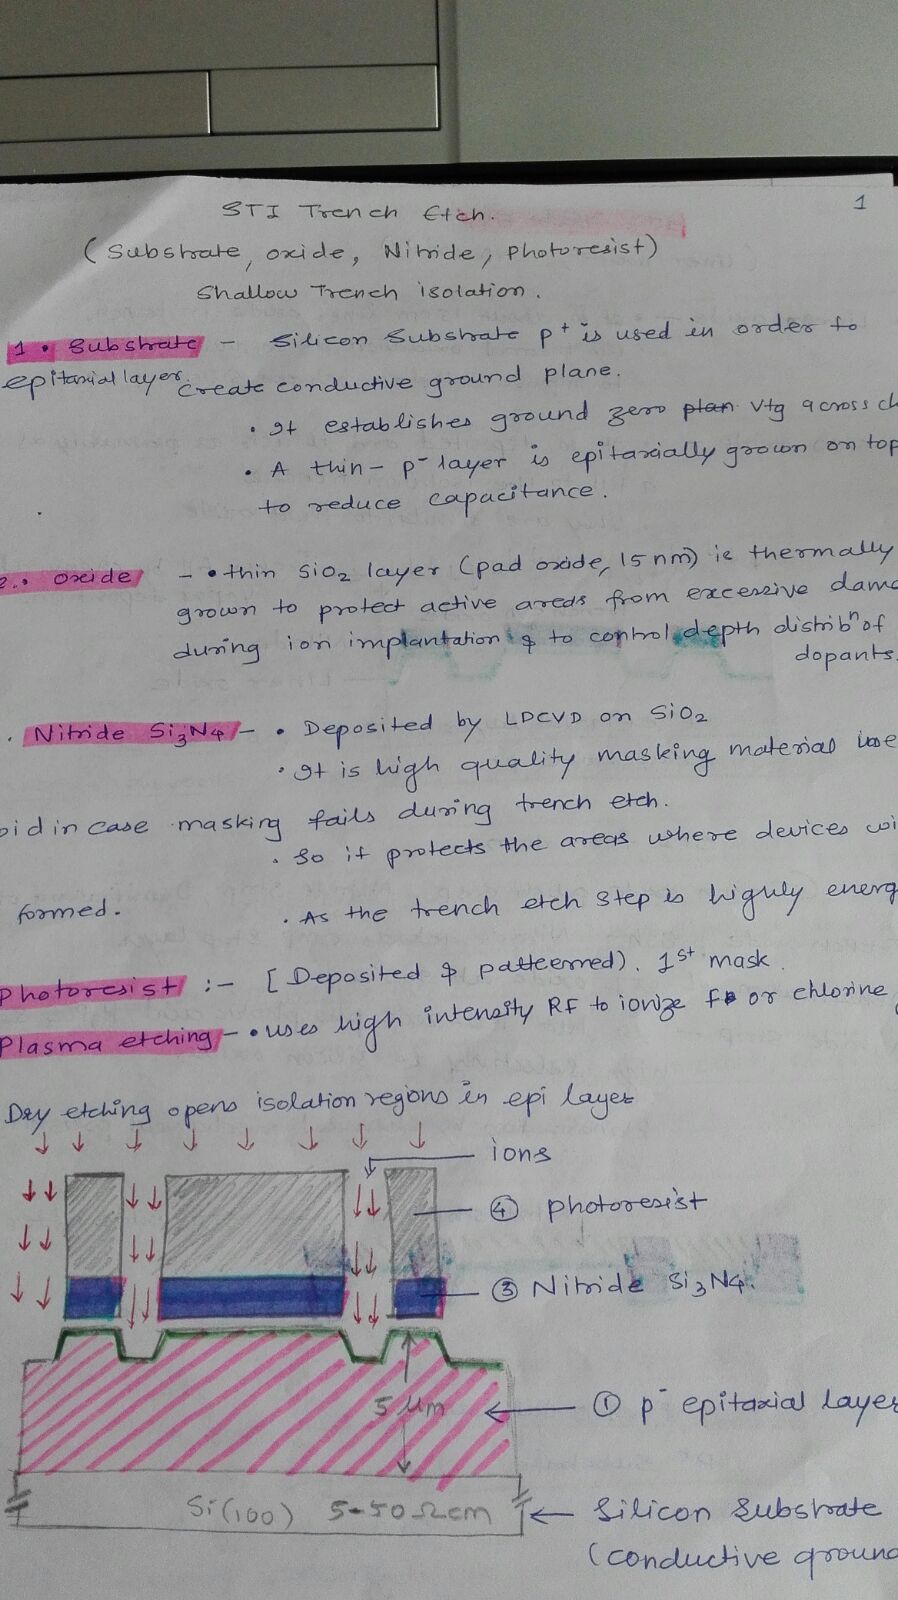 1
STI Trench Etch.
(Substrate, oxide, Nitride, Photoresist)
Shallow Trench isolation.
1. Substrate - Silicon Substrate p+ is used in order to
epitaxial layer. create conductive ground plane.
• It establishes ground zero plan vtg across ch
• A thin - p- layer is epitaxially grown on top
to reduce capacitance.
2.• Oxide - • thin SiO2 layer (pad oxide, 15 nm) is thermally
grown to protect active areas from excessive dama
during ion implantation & to control depth distribn of
dopants.
. Nitride Si3N4 - • Deposited by LDCVD on SiO2
• It is high quality masking material use
oid in case masking fails during trench etch.
• So it protects the areas where devices wi
formed.
• As the trench etch step is highly energ
Photoresist :- [Deposited & patterned). 1st mask.
Plasma etching - • uses high intensity RF to ionize F or chlorine
Dry etching opens isolation regions in epi layer
ions
④ photoresist
③ Nitride Si3N4.
5 μm
① p- epitaxial layer
Si(100) 5-50 Ωcm
Silicon Substrate
(conductive ground